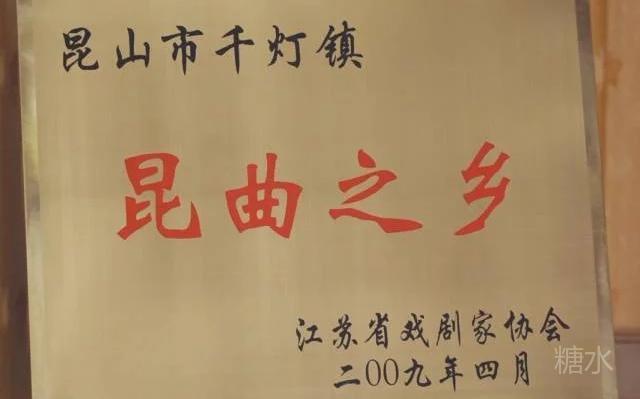 昆山市千灯镇
昆曲之乡
江苏省戏剧家协会
二00九年四月
糖水